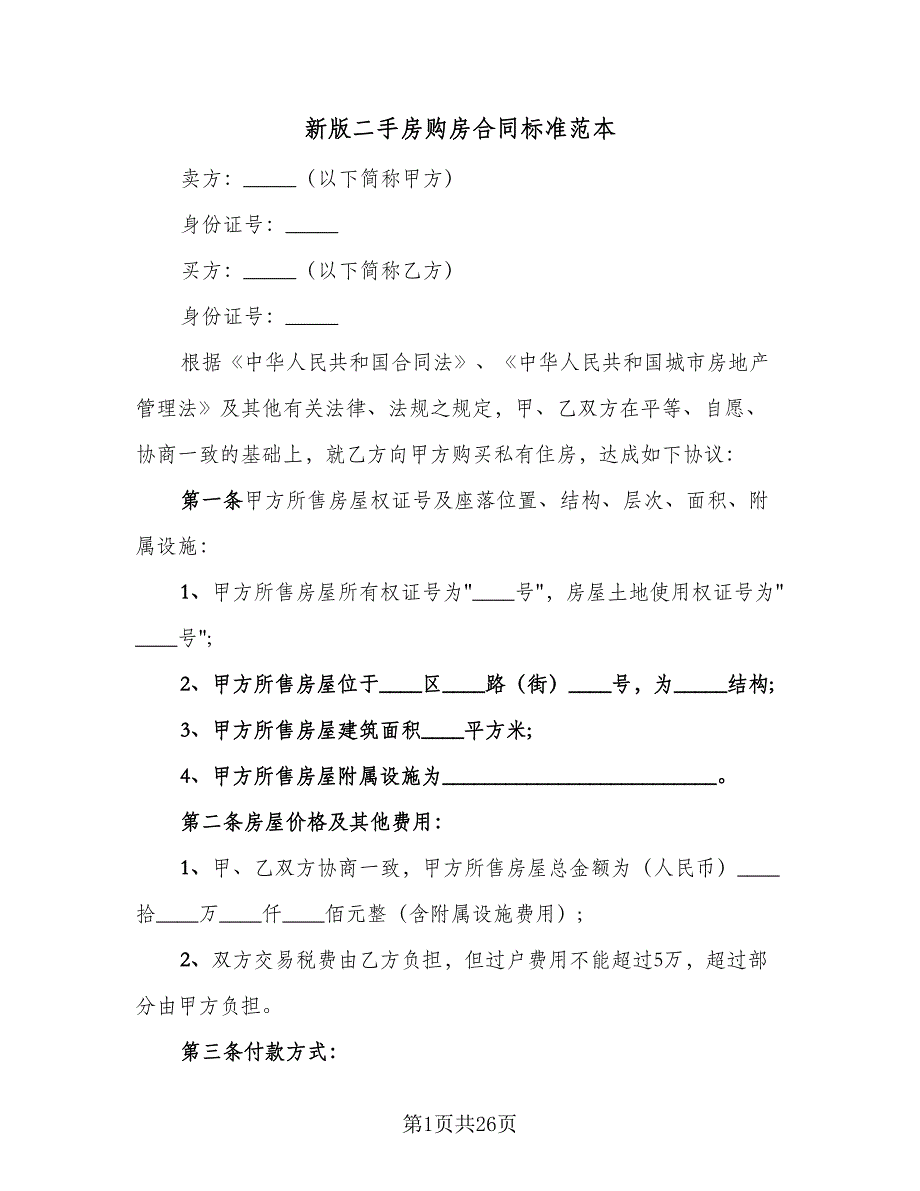 新版二手房购房合同标准范本
卖方：_____（以下简称甲方）
身份证号：_____
买方：_____（以下简称乙方）
身份证号：_____
根据《中华人民共和国合同法》、《中华人民共和国城市房地产
管理法》及其他有关法律、法规之规定，甲、乙双方在平等、自愿、
协商一致的基础上，就乙方向甲方购买私有住房，达成如下协议：
第一条甲方所售房屋权证号及座落位置、结构、层次、面积、附
属设施：
1、甲方所售房屋所有权证号为"____号"，房屋土地使用权证号为"
____号";
2、甲方所售房屋位于____区____路（街）____号，为_____结构;
3、甲方所售房屋建筑面积____平方米;
4、甲方所售房屋附属设施为__________________________。
第二条房屋价格及其他费用：
1、甲、乙双方协商一致，甲方所售房屋总金额为（人民币）____
拾____万____仟____佰元整（含附属设施费用）;
2、双方交易税费由乙方负担，但过户费用不能超过5万，超过部
分由甲方负担。
第三条付款方式：
第1页共26页